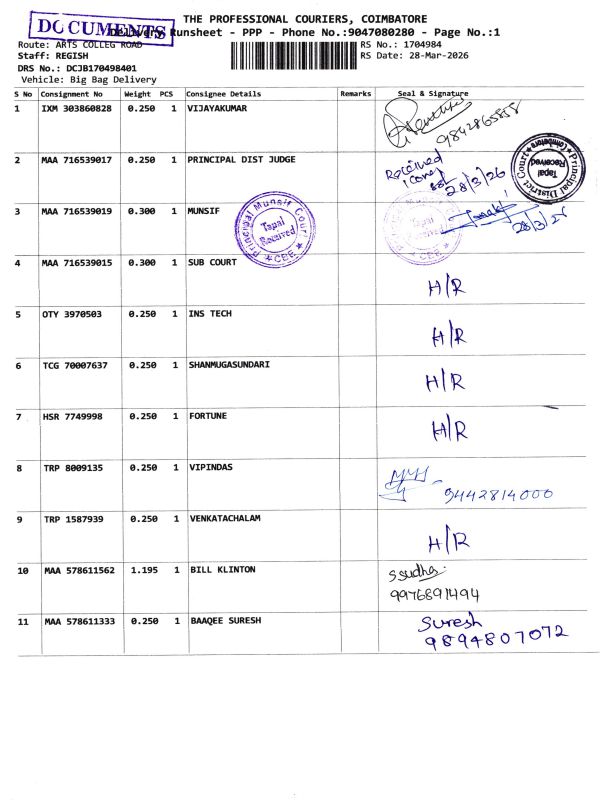 THE PROFESSIONAL COURIERS, COIMBATORE
DOCUMENTS
Delivery Runsheet - PPP - Phone No.:9047080280 - Page No.:1
Route: ARTS COLLEG ROAD
RS No.: 1704984
Staff: REGISH
RS Date: 28-Mar-2026
DRS No.: DCJB170498401
Vehicle: Big Bag Delivery
S No Consignment No Weight PCS Consignee Details Remarks Seal & Signature
1 IXM 303860828 0.250 1 VIJAYAKUMAR
9842865858
2 MAA 716539017 0.250 1 PRINCIPAL DIST JUDGE
Received
28/3/26
Principal District Court
Tapal Received
Coimbatore
3 MAA 716539019 0.300 1 MUNSIF
Principal Munsif Court
Tapal
Received
CBE
Tapal
Received
CBE
28/3/26
4 MAA 716539015 0.300 1 SUB COURT
H/R
5 OTY 3970503 0.250 1 INS TECH
H/R
6 TCG 70007637 0.250 1 SHANMUGASUNDARI
H/R
7 HSR 7749998 0.250 1 FORTUNE
H/R
8 TRP 8009135 0.250 1 VIPINDAS
9442814000
9 TRP 1587939 0.250 1 VENKATACHALAM
H/R
10 MAA 578611562 1.195 1 BILL KLINTON
S Sudha
9976891494
11 MAA 578611333 0.250 1 BAAQEE SURESH
Suresh
9894807072